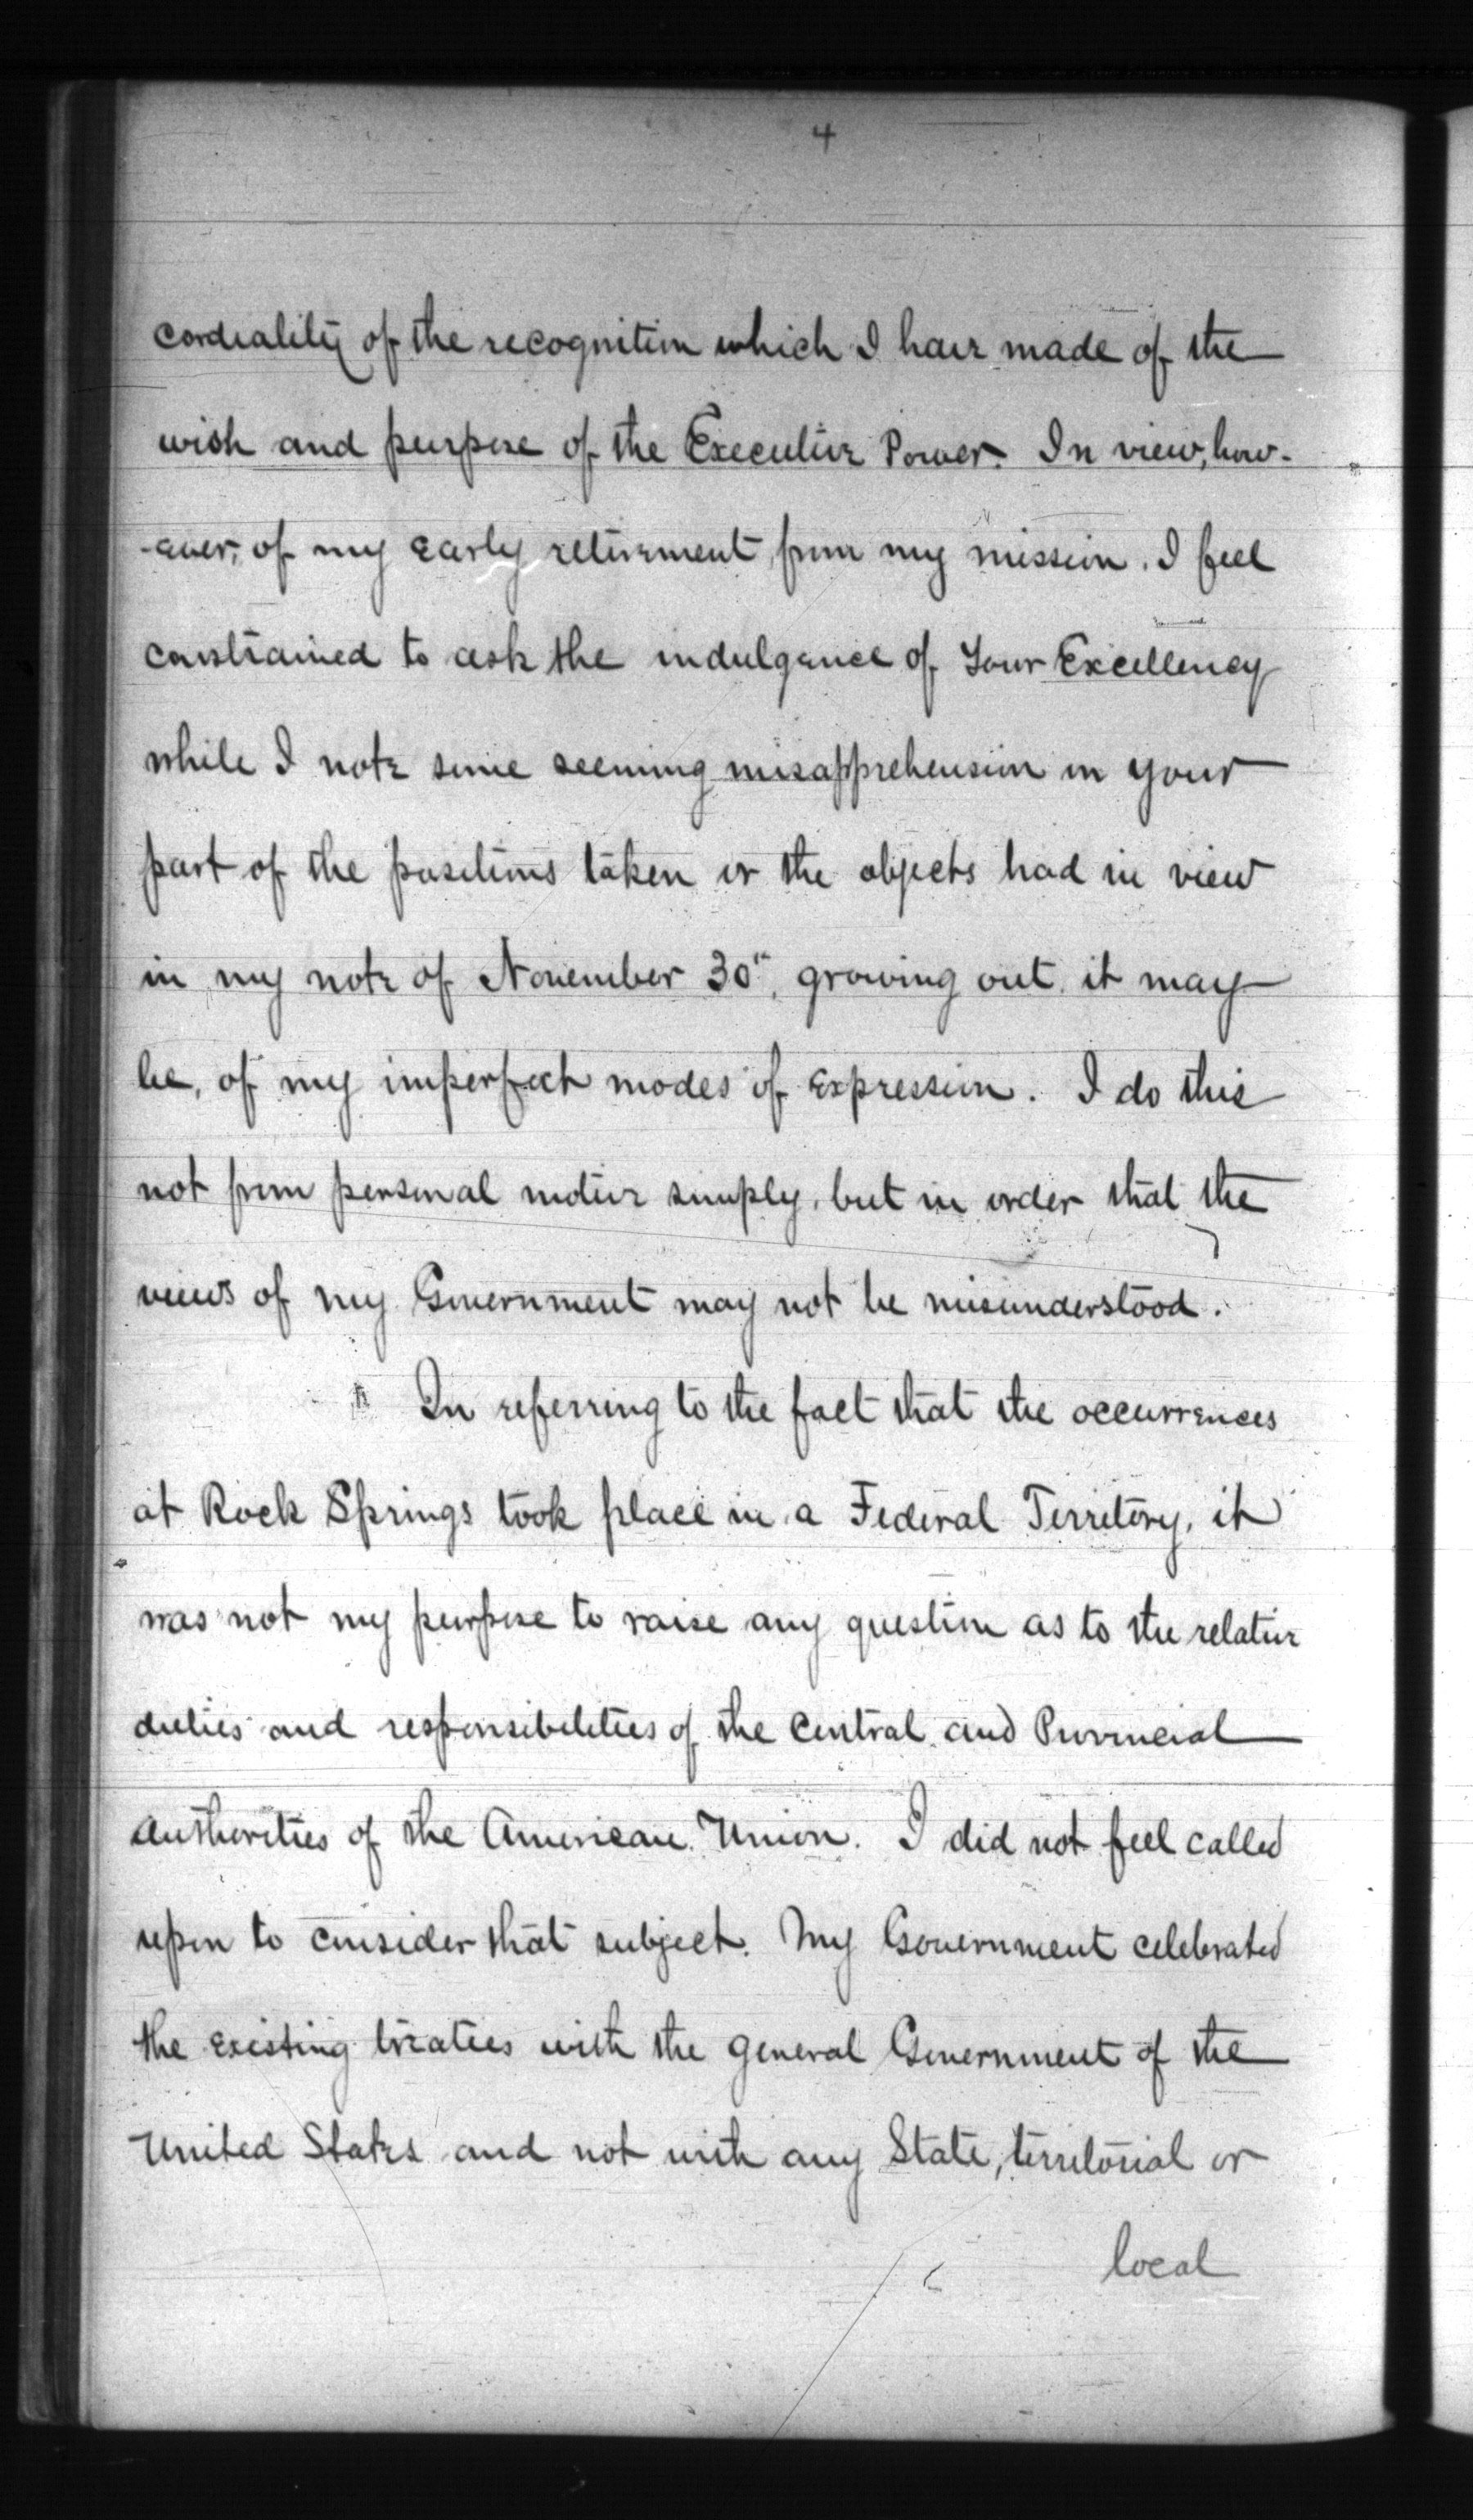 4
cordiality of the recognition which I have made of the
wish and purpose of the Executive Power. In view, how-
-ever, of my early retirement from my mission, I feel
constrained to ask the indulgence of Your Excellency
while I note some seeming misapprehension on your
part of the positions taken or the objects had in view
in my note of November 30th, growing out, it may
be, of my imperfect modes of expression. I do this
not from personal motive simply, but in order that the
views of my Government may not be misunderstood.
In referring to the fact that the occurrences
at Rock Springs took place in a Federal Territory, it
was not my purpose to raise any question as to the relative
duties and responsibilities of the Central and Provincial
authorities of the American Union. I did not feel called
upon to consider that subject. My Government celebrated
the existing treaties with the general Government of the
United States and not with any State, territorial or
local